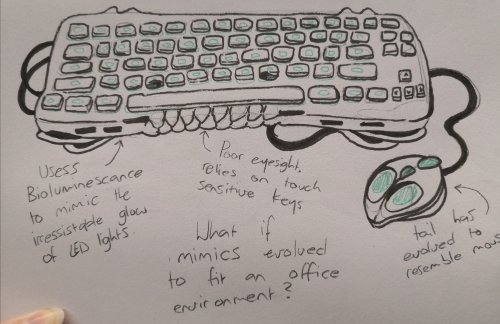 Usess
Bioluminescance
to mimic the
irresistable glow
of LED lights.
Poor eyesight,
relies on touch
sensitive keys
What if
mimics evolved
to fit an office
environment?
tail has
evolved to
resemble mouse